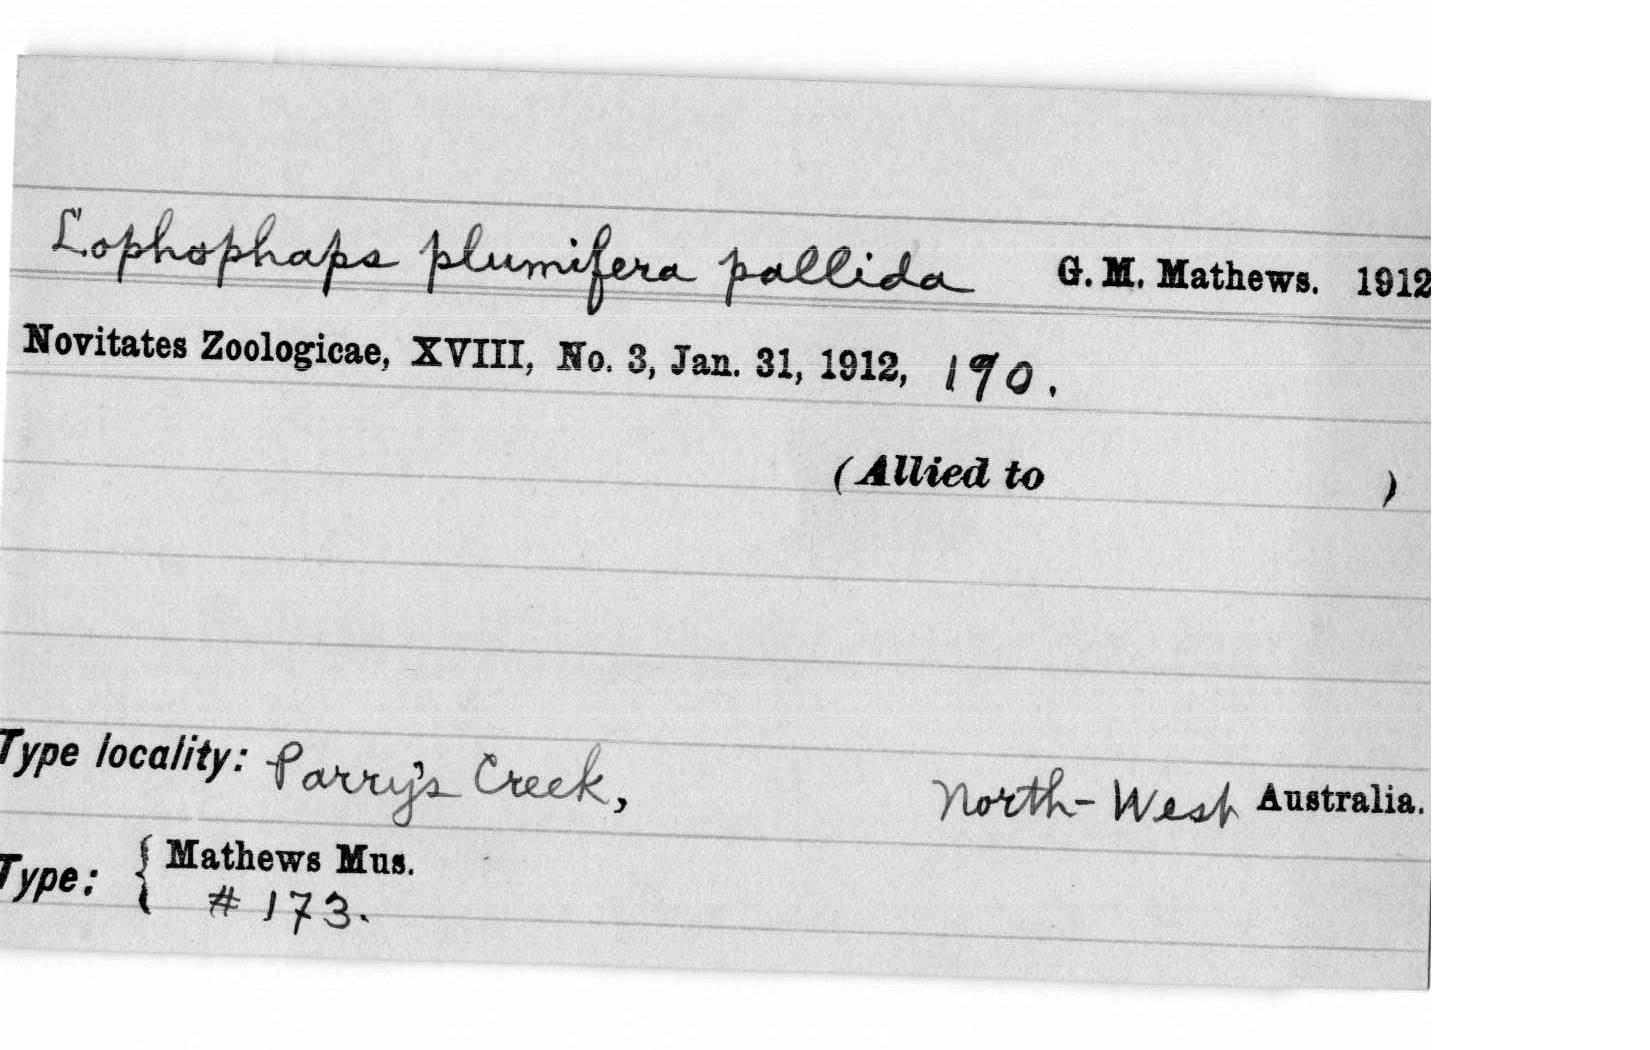 Lophophaps plumifera pallida G. M. Mathews. 1912
Novitates Zoologicae, XVIII, No. 3, Jan. 31, 1912, 190.
(Allied to )
Type locality: Parry's Creek, North-West Australia.
Type: { Mathews Mus.
# 173.